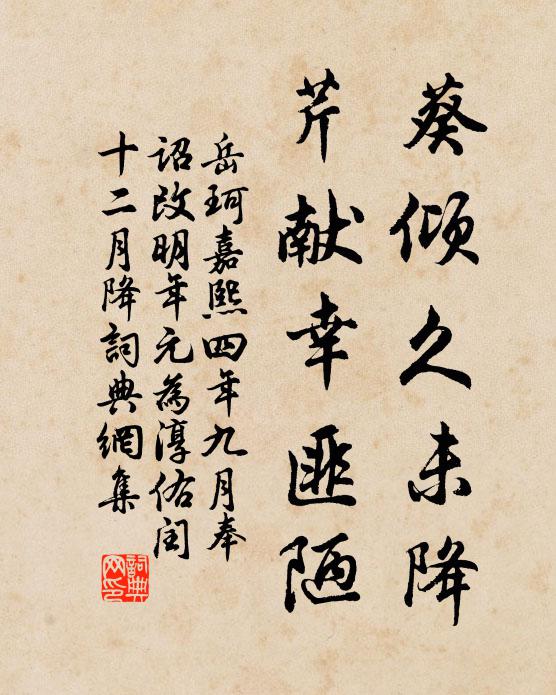 葵倾久未降
芹献幸匪陋
岳珂嘉熙四年九月奉
诏改明年元為淳佑闰
十二月降詞典網集
詞典
网印